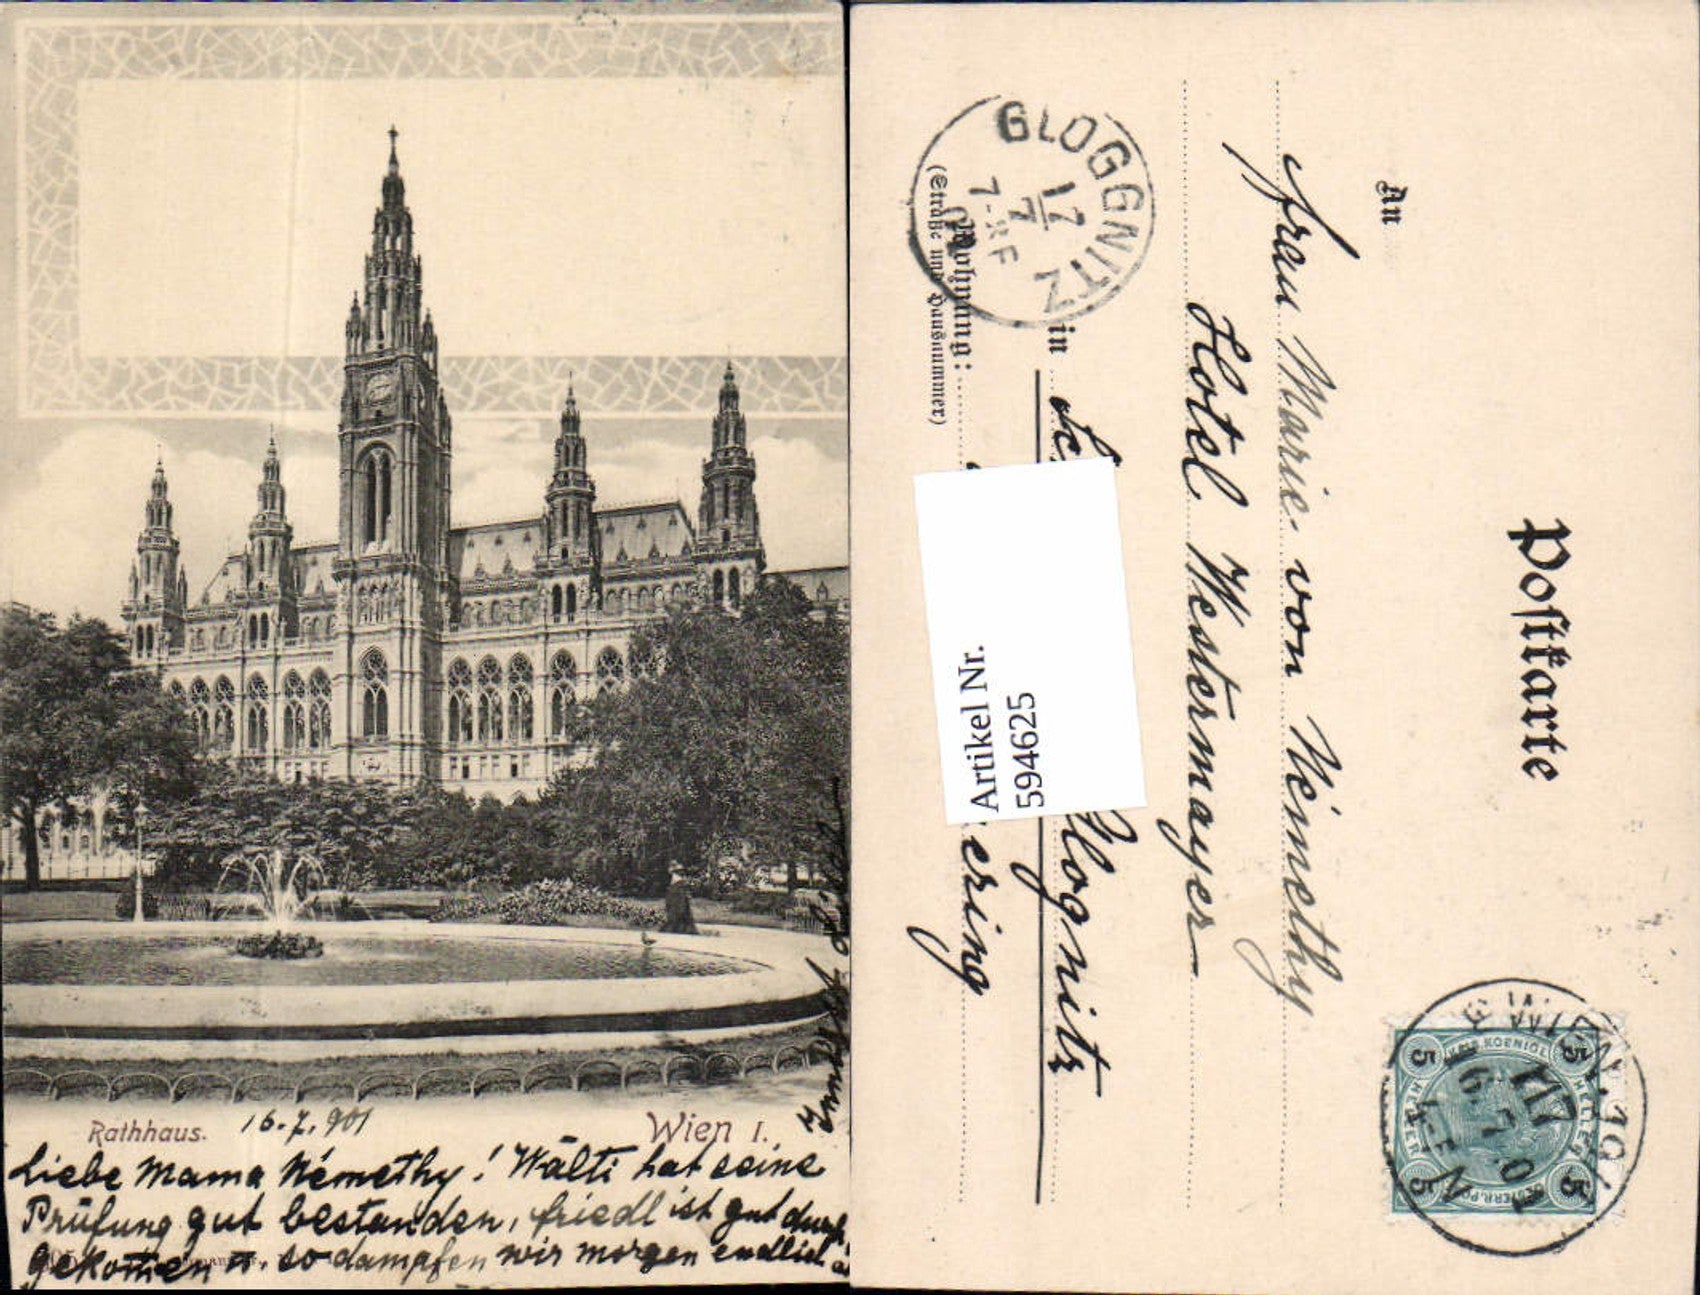 Rathhaus. 16.7.901 Wien I.
Liebe Mama Némethy! Wälti hat seine
Prüfung gut bestanden, friedl ist gut durch
gekommen u. so dampfen wir morgen endlich
Postkarte
An
Frau Marie von Némethy
Hotel Westermayer
in
Glognitz
Wohnung:
(Straße und Hausnummer)
GLOGGNITZ
17
7
7-8F
Artikel Nr.
594625
WIEN
16.7.01
5 HELLER 5